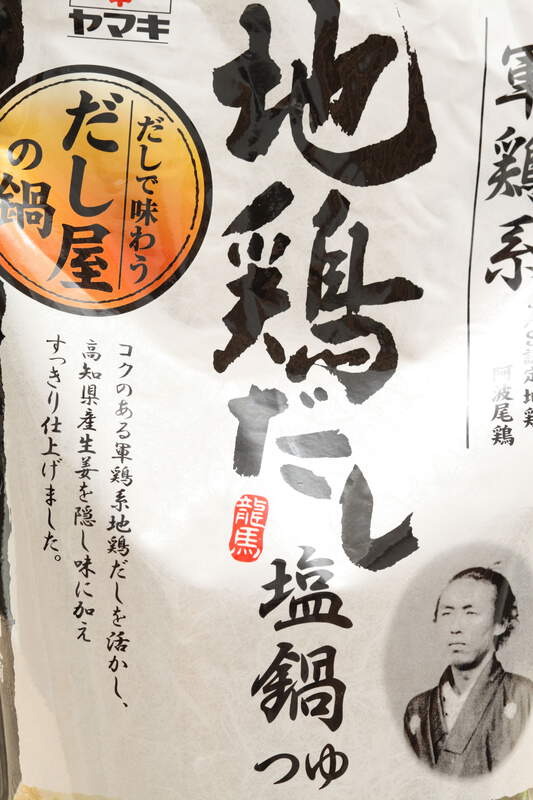 ヤマキ
だしで味わう
だし屋
の鍋
地鶏だし
龍馬
塩鍋
つゆ
軍鶏系
認定地鶏
阿波尾鶏
コクのある軍鶏系地鶏だしを活かし、
高知県産生姜を隠し味に加え
すっきり仕上げました。